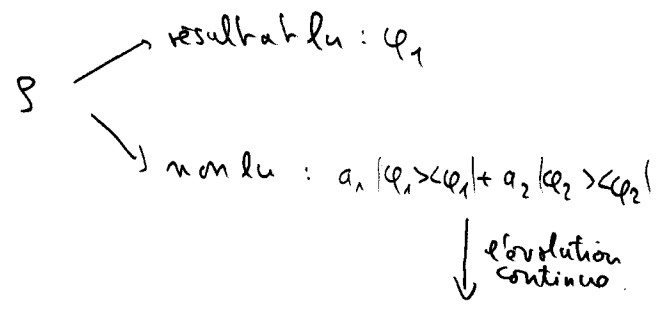 résultat lu : φ₁
ρ
non lu : a₁ |φ₁><φ₁| + a₂ |φ₂><φ₂|
l'évolution
continue